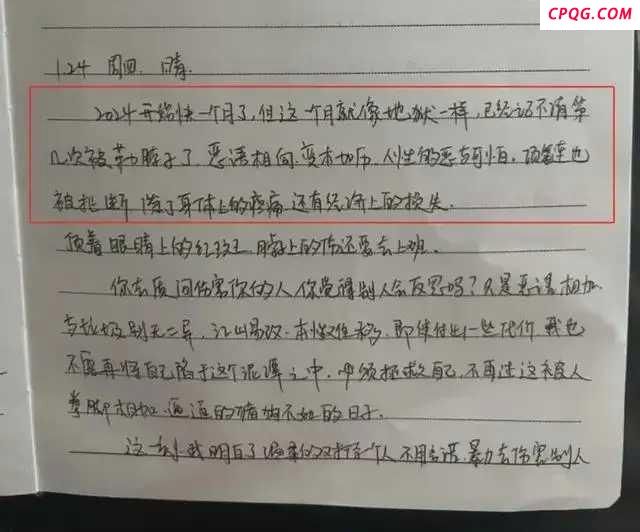 CPQG.COM
1.24 周四. 晴.
2024开始快一个月了,但这个月就像地狱一样,已经记不清第
几次被勒脖子了,恶语相向,变本加厉,人性的恶真可怕,项链也
被扯断,除了身体上的疼痛还有经济上的损失.
顶着眼睛上的红斑,脖上的伤还要去上班.
你去质问伤害你的人,你觉得别人会反思吗?只是恶语相加
与垃圾别无二异,江山易改.本性难移,即使付出一些代价,我也
不愿再将自己陷于这个泥潭之中,必须拯救自己,不再过这种被人
拳脚相加、逼逼的猪狗不如的日子.
这一刻我明白了温柔的对待一个人,不用言语、暴力去伤害别人